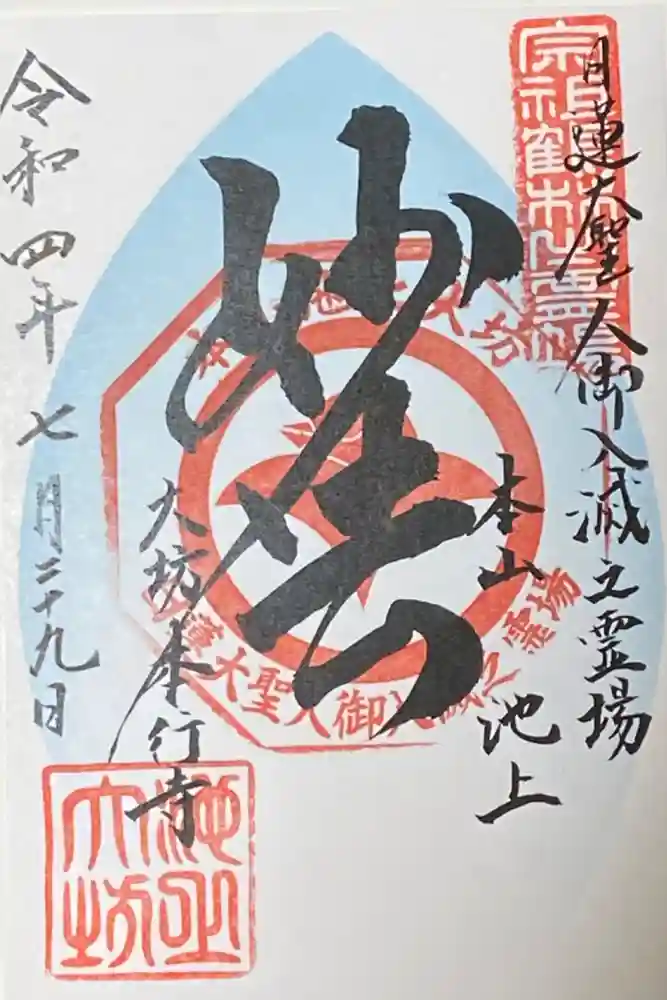 日蓮大聖人御入滅之霊場
本山 池上
妙法
大坊本行寺
令和四年七月二十九日
日蓮大聖人御入滅之霊場
池上
大坊